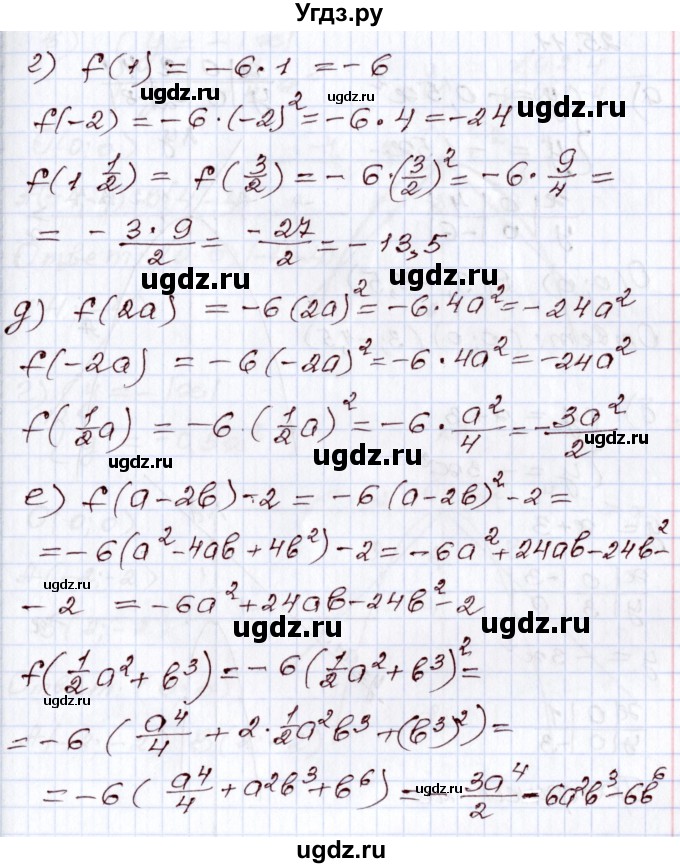 Угдз.ру
г) f(1) = -6·1 = -6
ugdz.ru ugdz.ru
f(-2) = -6·(-2)² = -6·4 = -24
ugdz.ru
f(1 1/2) = f(3/2) = -6·(3/2)² = -6·9/4 =
= - 3·9/2 = -27/2 = -13,5
ugdz.ru
ugdz.ru
д) f(2a) = -6(2a)² = -6·4a² = -24a²
ugdz.ru
f(-2a) = -6(-2a)² = -6·4a² = -24a²
f(1/2 a) = -6·(1/2 a)² = -6·a²/4 = -3a²/2
ugdz.ru ugdz.ru
е) f(a-2b)-2 = -6(a-2b)²-2 =
ugdz.ru
= -6(a²-4ab+4b²)-2 = -6a²+24ab-24b²-
ugdz.ru
-2 = -6a²+24ab-24b²-2
ugdz.ru
f(1/2 a²+b³) = -6(1/2 a²+b³)² =
ugdz.ru ugdz.ru
= -6(a⁴/4 + 2·1/2 a²b³+(b³)²) =
ugdz.ru
= -6(a⁴/4 + a²b³+b⁶) = -3a⁴/2 - 6a²b³-6b⁶
ugdz.ru ugdz.ru